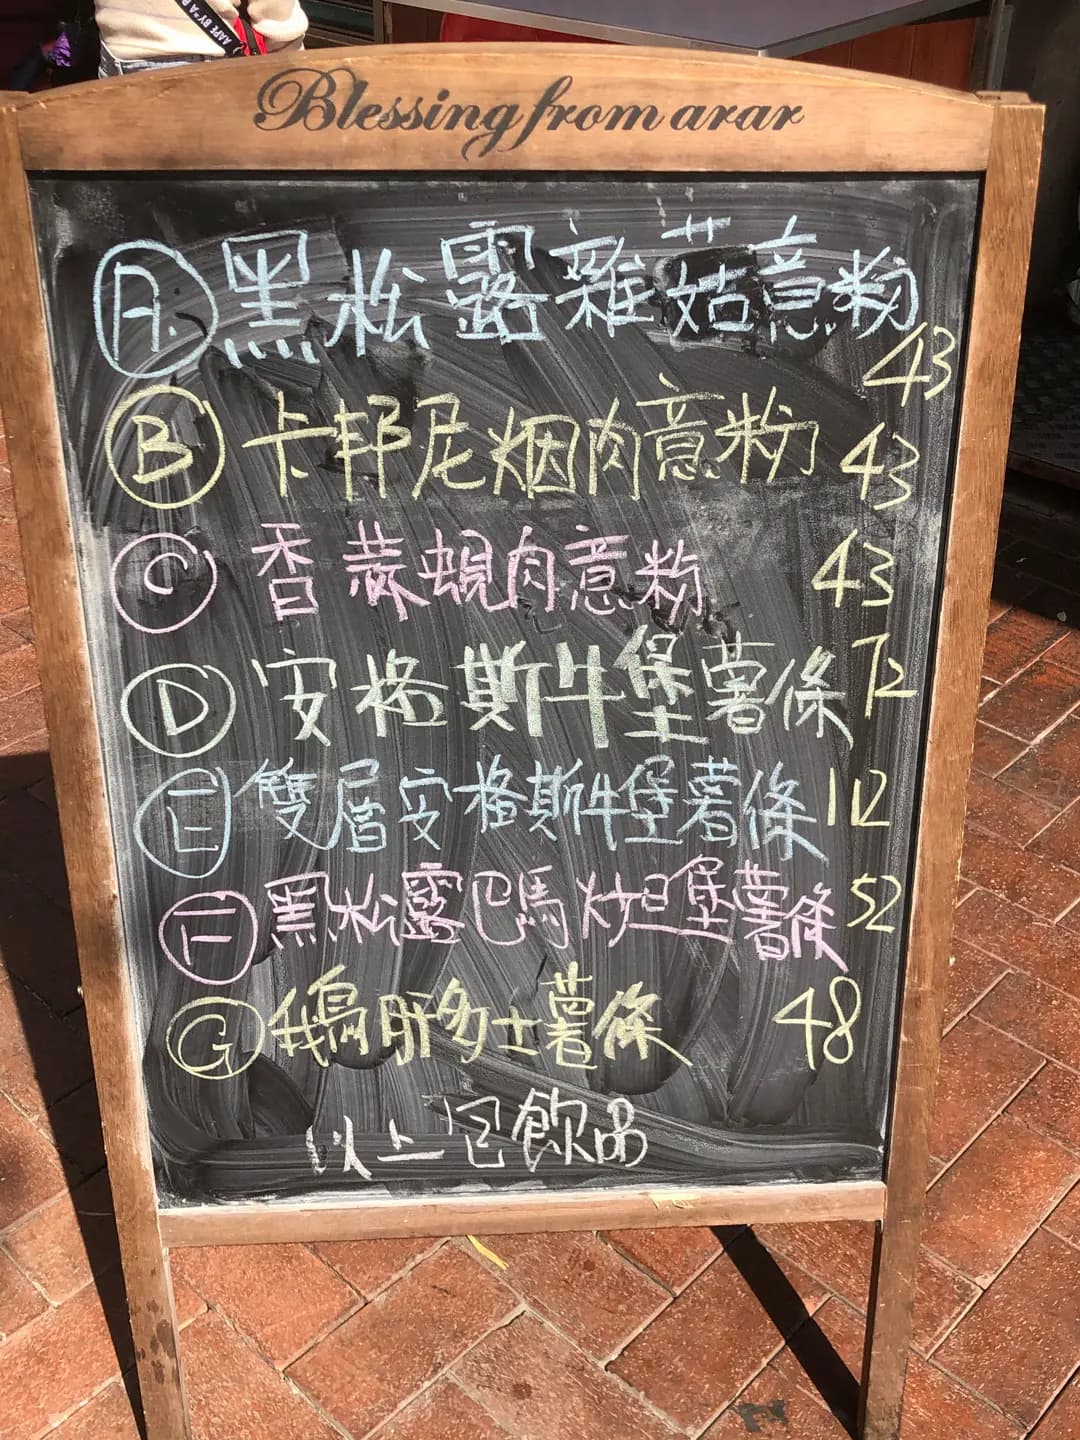 AAPE BY*A B
Blessing from arar
A. 黑松露雜菇意粉 43
B 卡邦尼烟肉意粉 43
C 香蒜蜆肉意粉 43
D 安格斯牛堡薯條 72
E 雙層安格斯牛堡薯條 112
F 黑松露巴馬火旦堡薯條 52
G 鵝肝多士薯條 48
以上包飲品